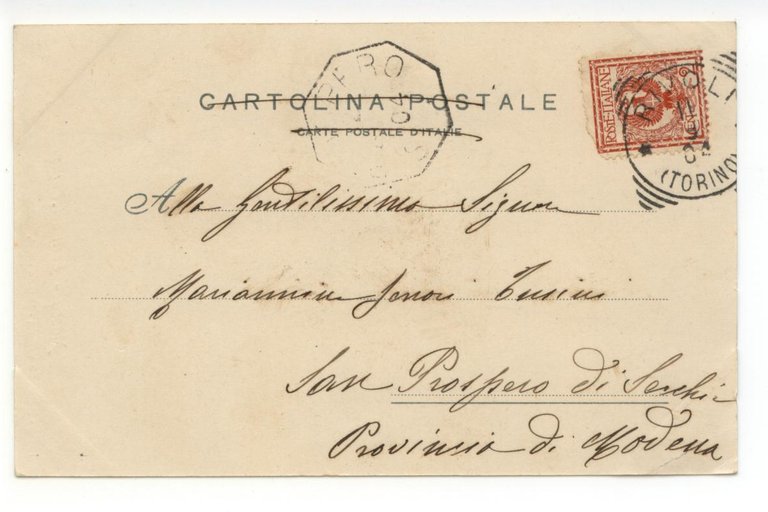 CARTOLINA POSTALE
CARTE POSTALE D'ITALIE
PERO
04
POSTE ITALIANE
2
RIVOLI
11
04
(TORINO)
Alla Gentilissima Signora
Mariannina
San Prospero di Secchia
Provincia di Modena